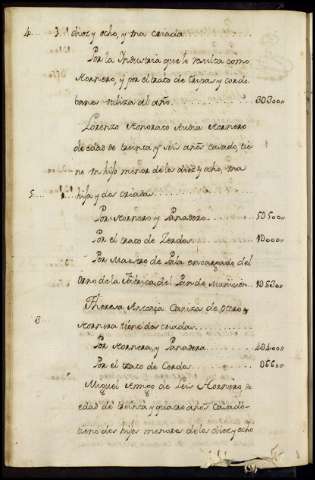 4... diez y ocho, y una criada
Por la Industria que le resulta como
Hornero, y por el trato de Trigos y cerdos
utiliza al año. 803.000
Lorenzo Honorato Hornero
de edad de treinta y seis años casado, tie
ne un hijo menor de los diez y ocho, una
5... hija, y dos criadas
Por Hornero y Panadero 535.00
Por el trato de Zerdos 10000
Por Maestro de Pala encargado del
orno de la Fabrica del Pan de Munición 1050.00
Theresa
3 Hornera tiene dos criadas
Por Hornera, y Panadera 404.000
Por el trato de Cerdos 066.00
Miguel de Hornero,
edad de treinta y quatro años Casado
tiene dos hijos menores de los diez y ocho